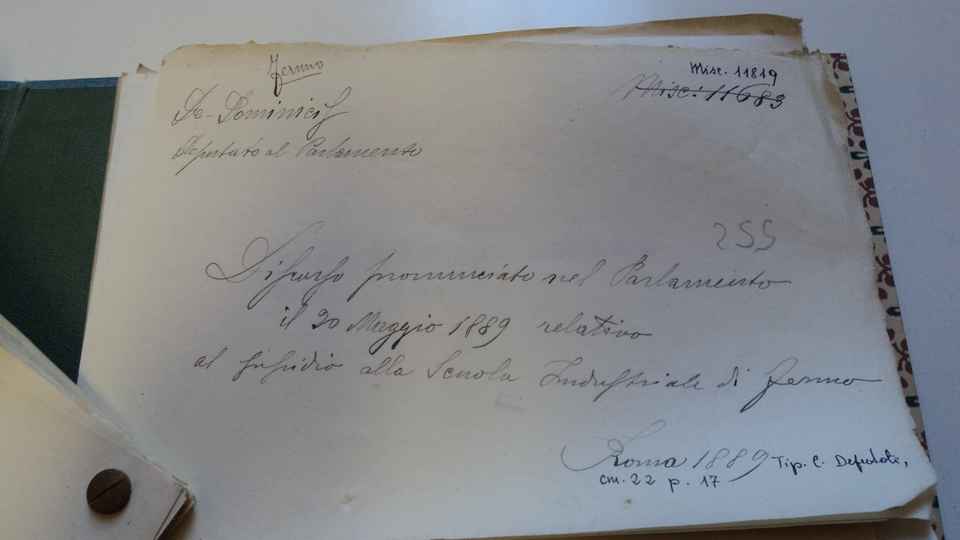 Fermo
Misc. 11819
Misc: 11683
De-Dominicis
Deputato al Parlamento
255
Discorso pronunciato nel Parlamento
il 20 Maggio 1889 relativo
al sussidio alla Scuola Industriale di Fermo
Roma 1889 Tip. C. Deputati,
cm. 22 p. 17